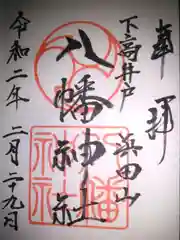 奉拝
下高井戸
浜田山
八幡神社
令和二年二月二十九日